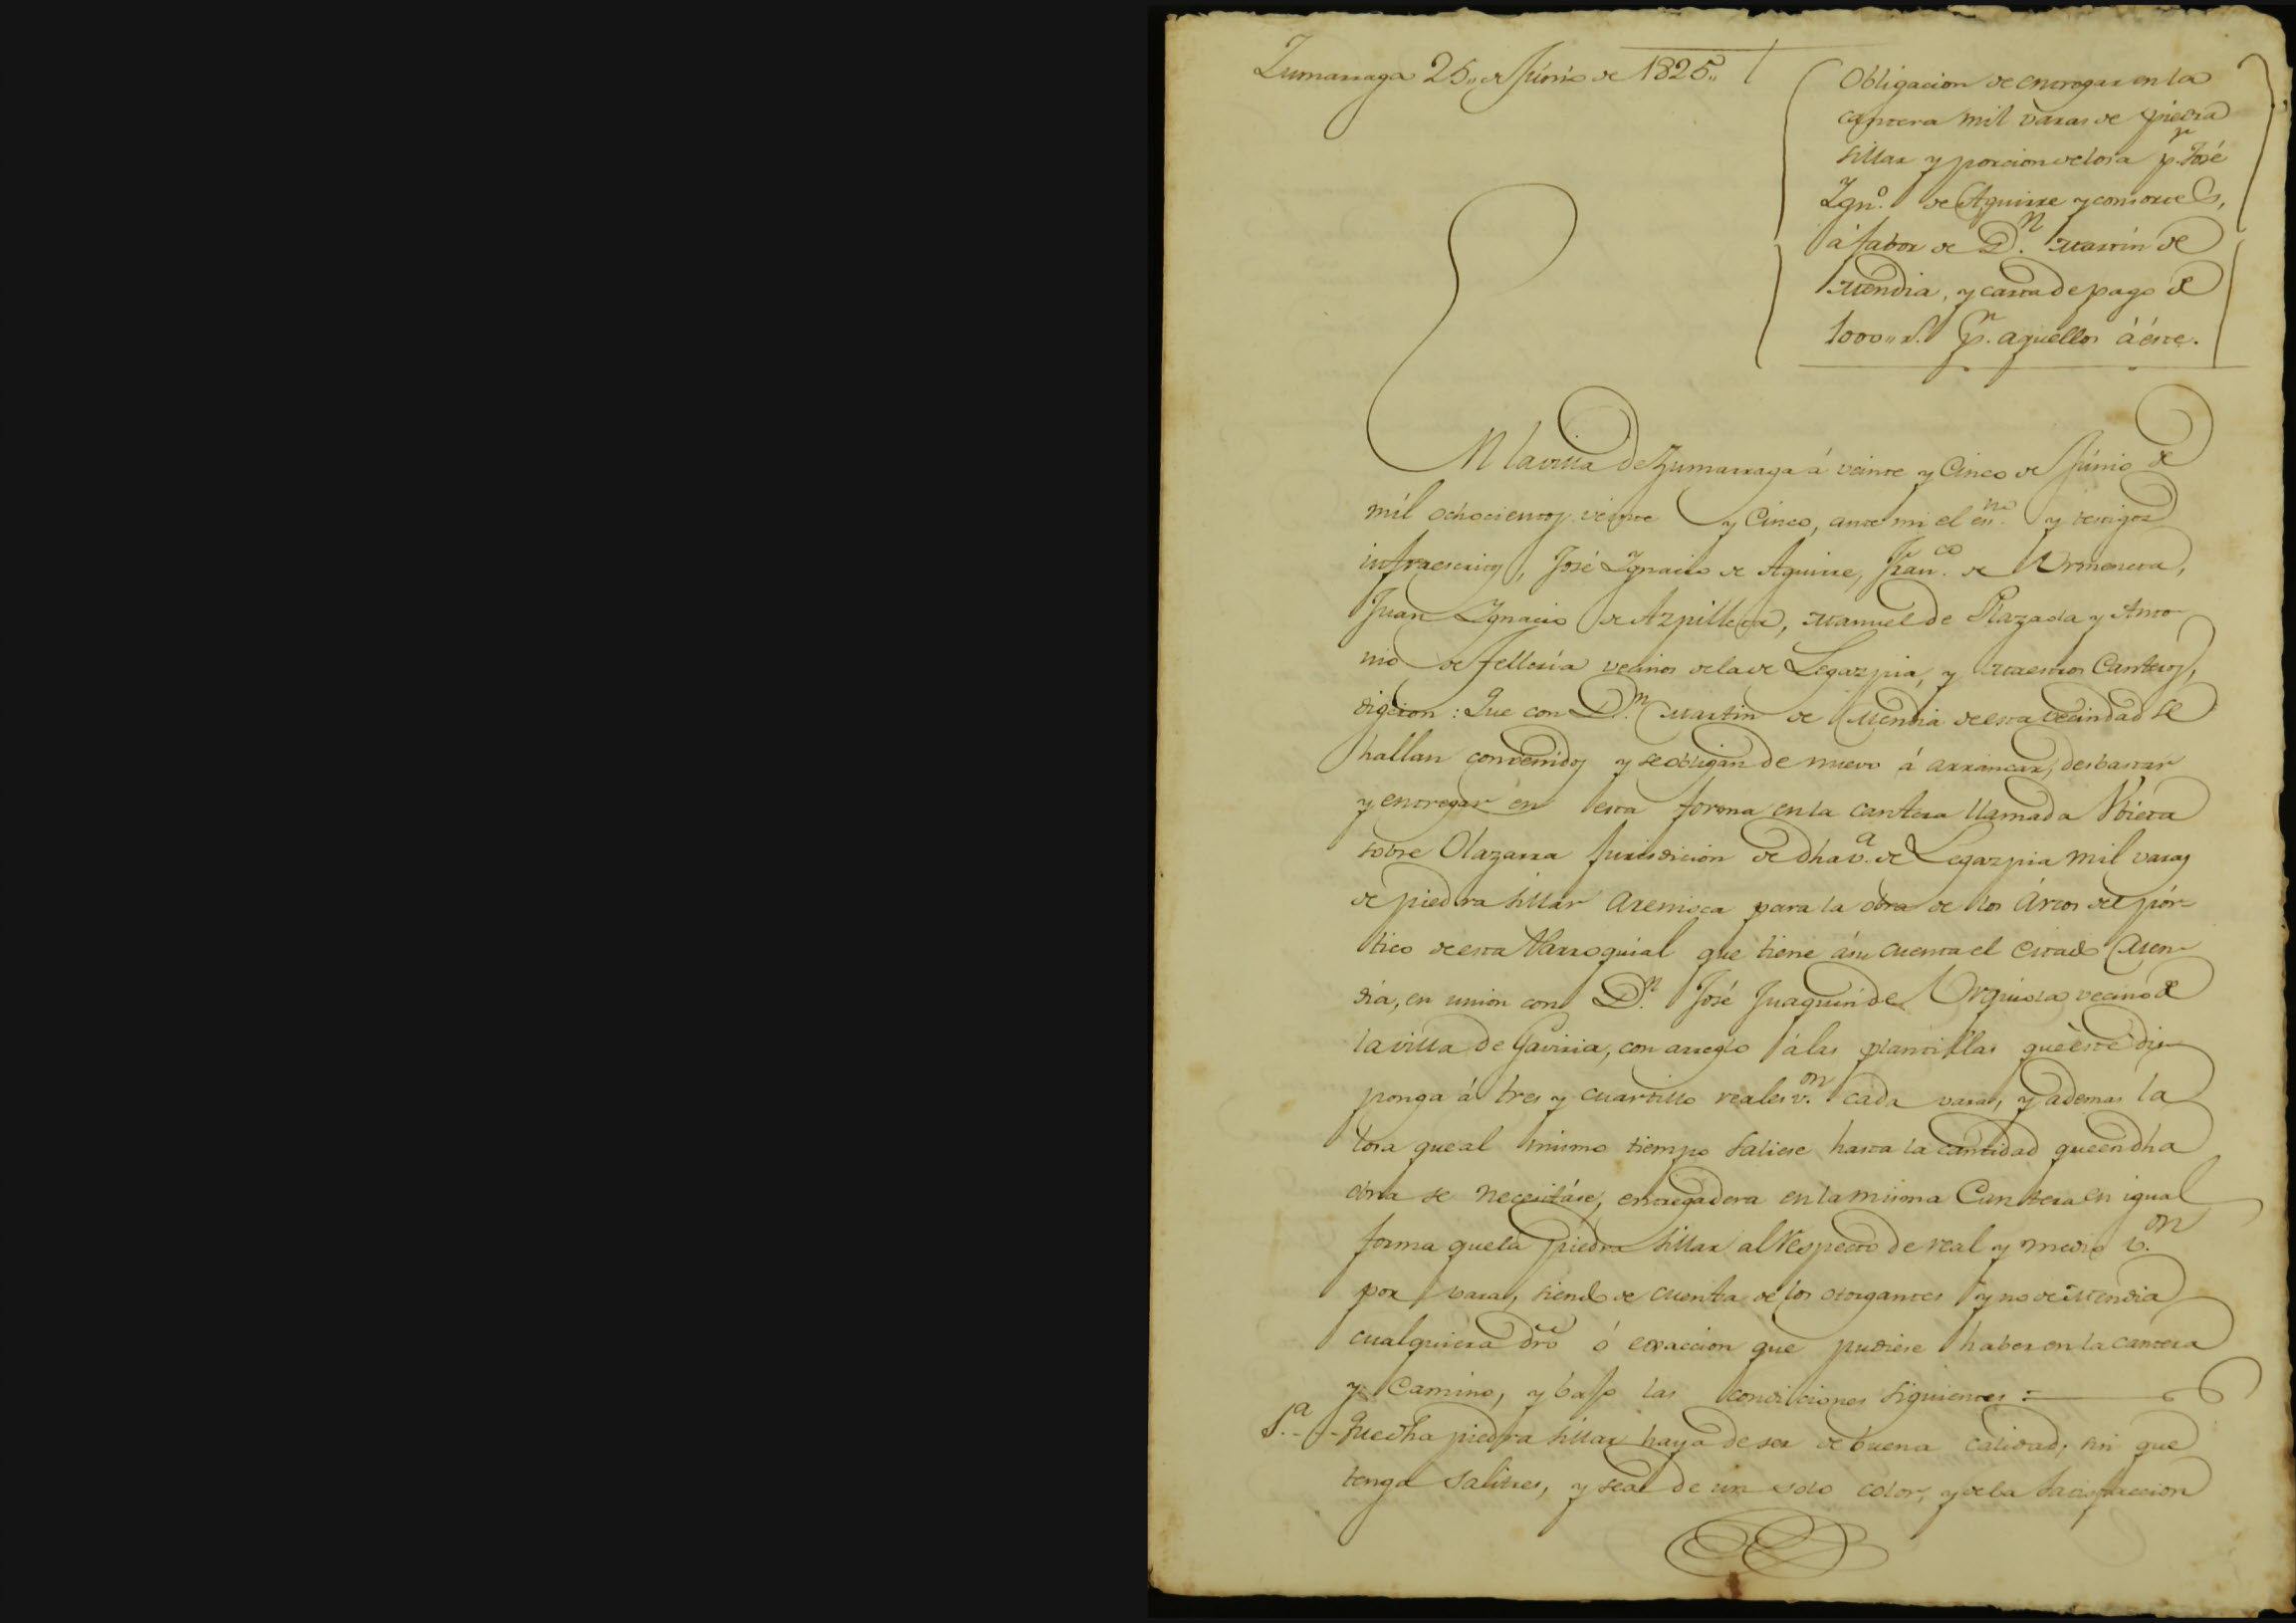 Zumarraga 25,, de Junio de 1825,,
Obligacion de entregar en la
cantera mil varas de piedra
sillar y porcion de losa p.r José
Ygn.o de Aguirre y consortes,
á fabor de D.n Martin de
Mendia, y carta de pago de
1000,, r.s p.r aquellos á éste.
EN la villa de Zumarraga á veinte y Cinco de Junio de
mil ochocientos veinte y Cinco, ante mi el es.no y testigos
infraescritos, José Ygnacio de Aguirre, Fran.co de Urmeneta,
Juan Ygnacio de Azpilleta, Manuel de Plazaola y Anto-
nio de Telleria vecinos de la de Legazpia, y Maestros Canteros,
digeron: Que con D.n Martin de Mendia de esta vecindad se
hallan convenidos y se obligan de nuevo á arrancar, desbastar
y entregar en esta forma en la cantera llamada
sobre Olazarra Jurisdicion de dha v.a de Legazpia mil varas
de piedra sillar Arenisca para la obra de los Arcos del pór-
tico de esta Parroquial que tiene á su cuenta el citado Men-
dia, en union con D.n José Juaquin de Urquiola vecino de
la villa de Gaviria, con arreglo á las plantillas que este dis-
ponga á tres y cuartillo reales v.on cada vara, y ademas la
losa que al mismo tiempo saliese hasta la cantidad que en dha
obra se necesitáse, entregadera en la misma Cantera en igual
forma que la piedra sillar al respecto de real y medio v.on
por vara, siendo de cuenta de los otorgantes y no de Mendia
cualquiera dro ó exaccion que pudiese haber en la cantera
y Camino, y bajo las condiciones siguientes:
1.a - Que dha piedra sillar haya de ser de buena calidad, sin que
tenga salitres, y sea de un solo color, y de la satisfaccion